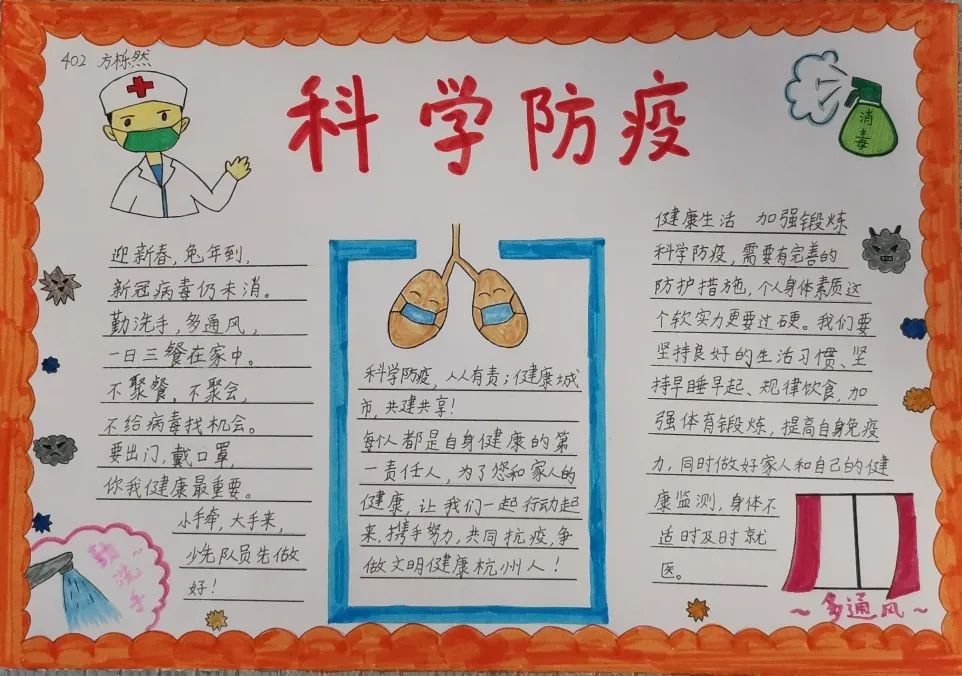 402 方栎然
科学防疫
消
毒
迎新春，兔年到，
新冠病毒仍未消。
勤洗手，多通风，
一日三餐在家中。
不聚餐，不聚会，
不给病毒找机会。
要出门，戴口罩，
你我健康最重要。
小手牵，大手来，
少先队员先做
好！
勤洗手
科学防疫，人人有责；健康城
市，共建共享！
每个人都是自身健康的第
一责任人，为了您和家人的
健康，让我们一起行动起
来，携手努力，共同抗疫，争
做文明健康杭州人！
健康生活 加强锻炼
科学防疫，需要有完善的
防护措施，个人身体素质这
个软实力更要过硬。我们要
坚持良好的生活习惯、坚
持早睡早起、规律饮食，加
强体育锻炼，提高自身免疫
力，同时做好家人和自己的健
康监测，身体不
适时及时就
医。
~多通风~